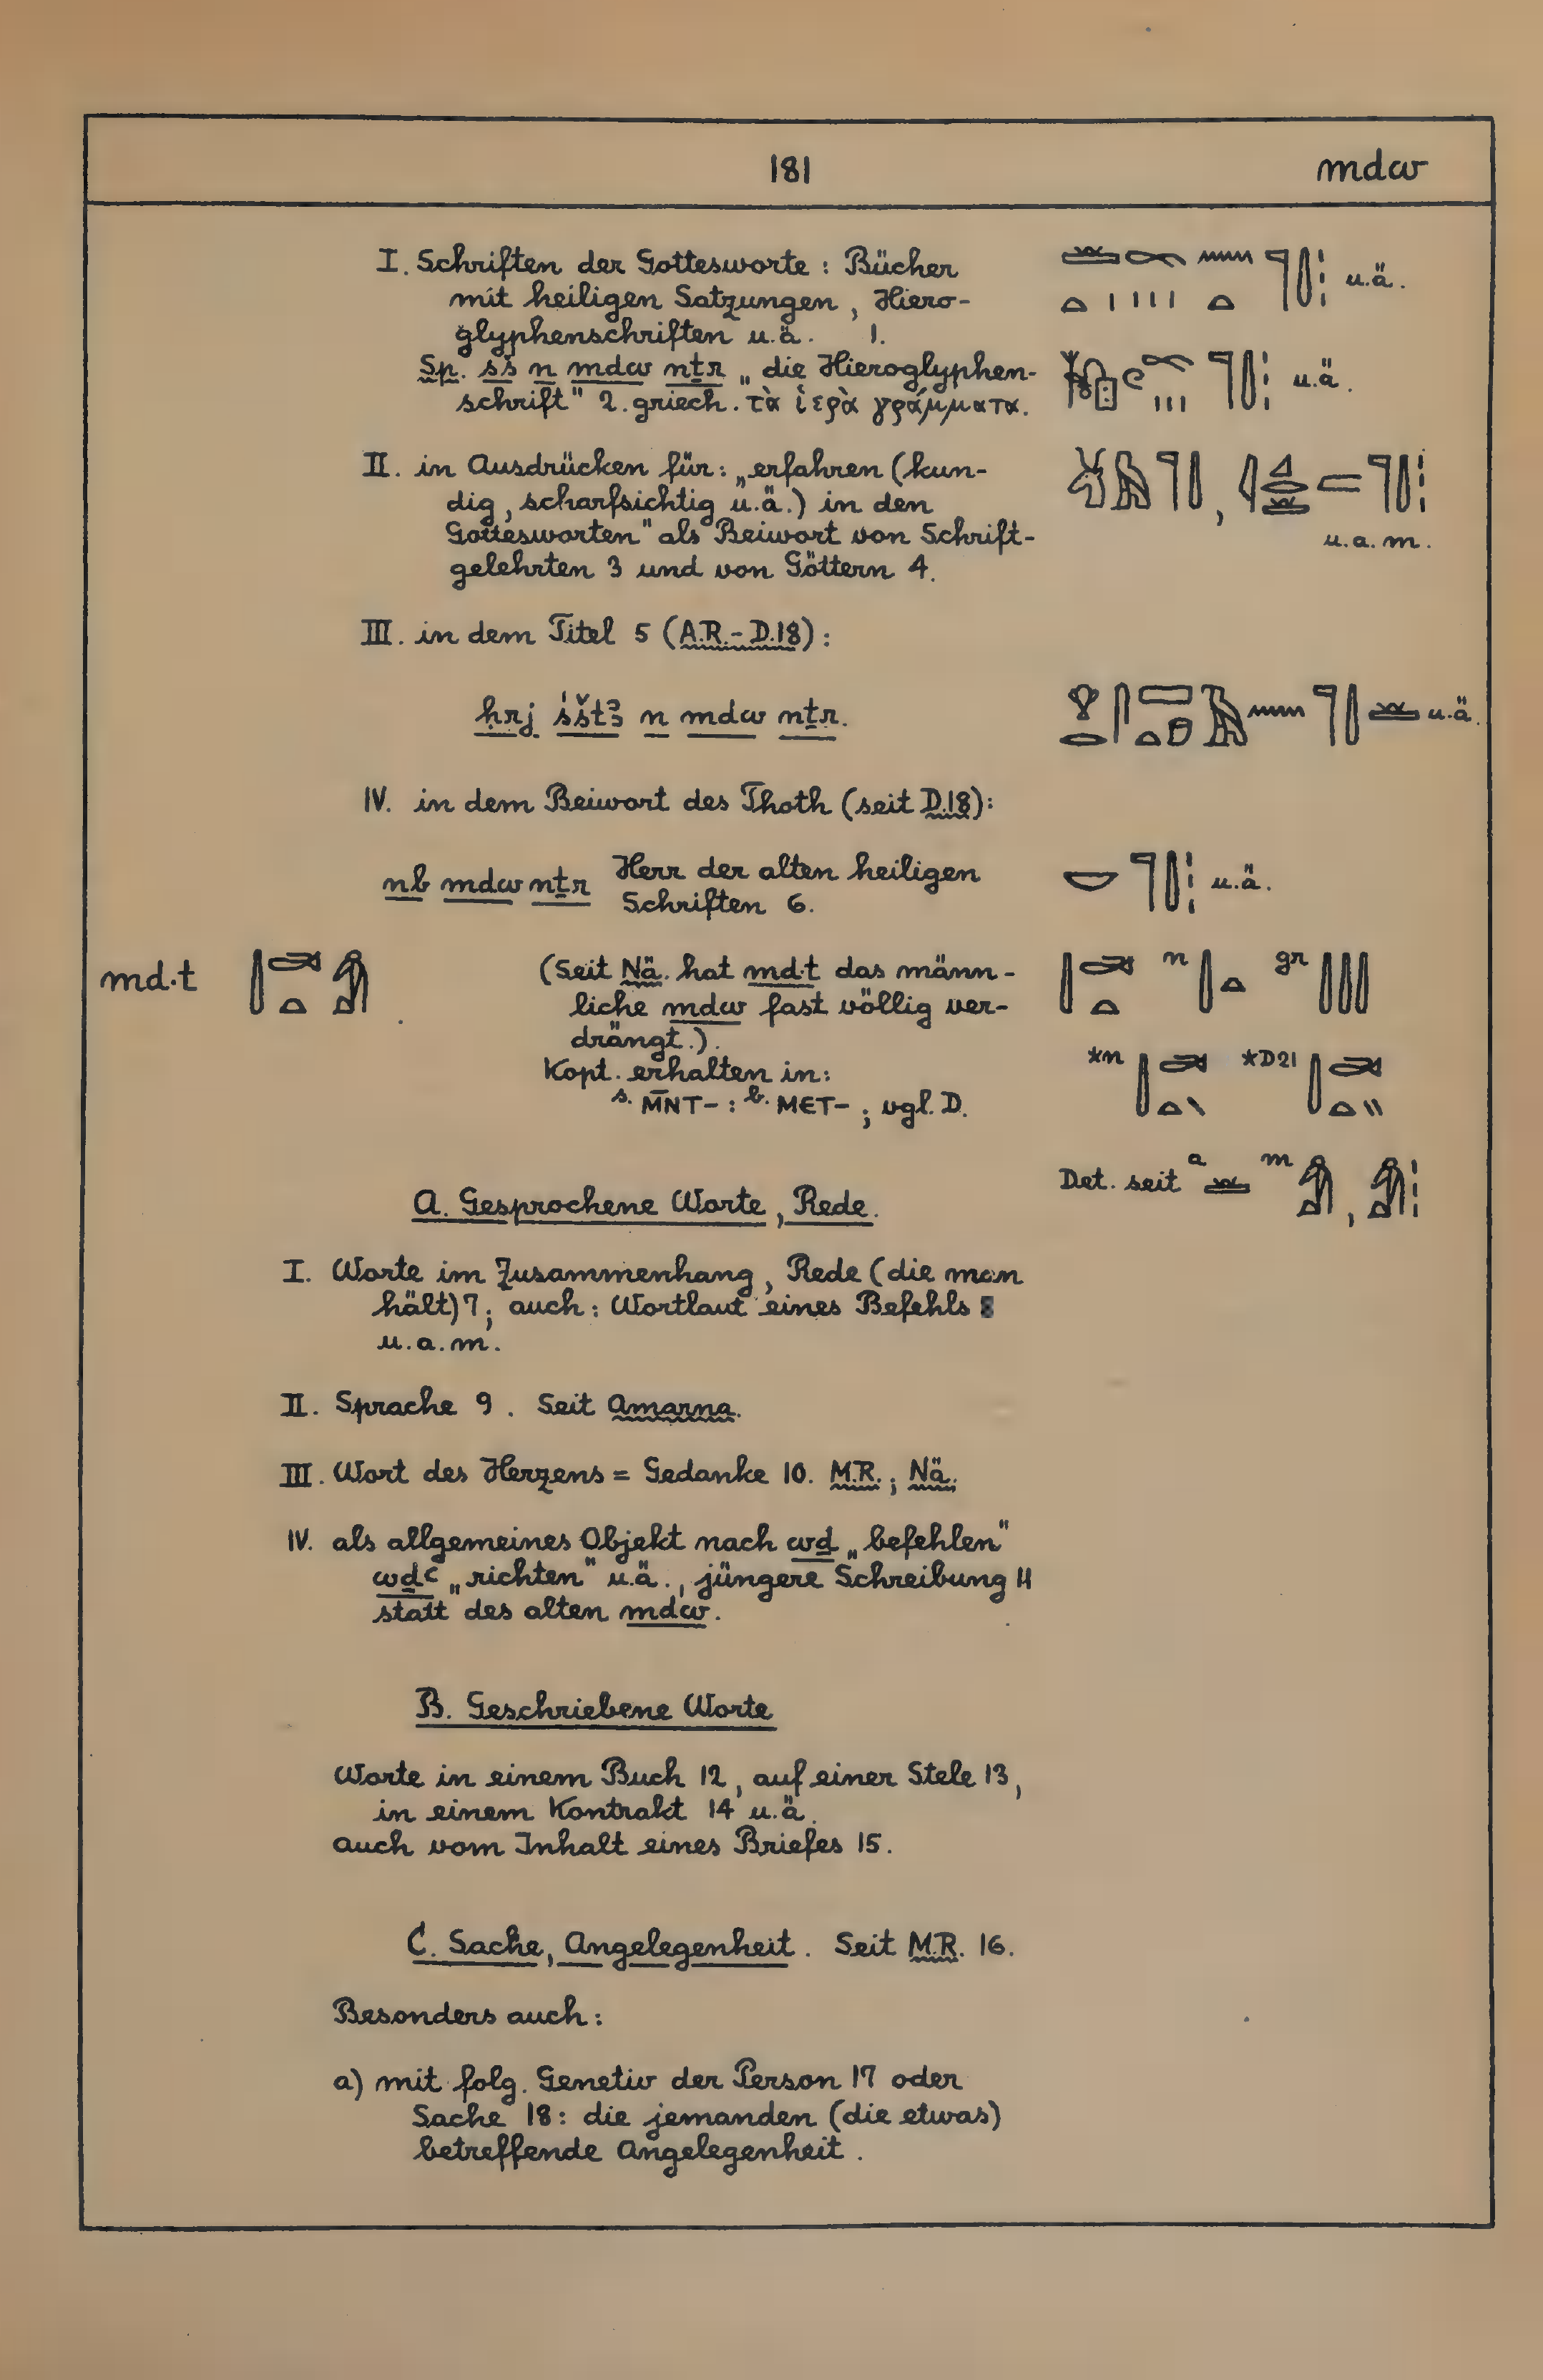 181 mdw
I. Schriften der Gottesworte : Bücher
mit heiligen Satzungen, Hiero-
glyphenschriften u.ä. 1. u.ä.
Sp. sš n mdw nṯr „die Hieroglyphen-
schrift" 2. griech. τὰ ἱερὰ γράμματα. u.ä.
II. in Ausdrücken für: „erfahren (kun-
dig, scharfsichtig u.ä.) in den
Gottesworten" als Beiwort von Schrift- u.a.m.
gelehrten 3 und von Göttern 4.
III. in dem Titel 5 (A.R.-D.18):
ḥrj śštꜣ n mdw nṯr. u.ä.
IV. in dem Beiwort des Thoth (seit D.18):
nb mdw nṯr Herr der alten heiligen
Schriften 6. u.ä.
md·t (Seit Nä. hat md·t das männ- n gr
liche mdw fast völlig ver-
drängt.).
Kopt. erhalten in: *n *D21
s. ⲘⲚ̅Ⲧ- : b. ⲘⲈⲦ- ; vgl. D.
Det. seit a m ,
A. Gesprochene Worte, Rede.
I. Worte im Zusammenhang, Rede (die man
hält) 7; auch: Wortlaut eines Befehls 8
u.a.m.
II. Sprache 9. Seit Amarna.
III. Wort des Herzens = Gedanke 10. M.R.; Nä.
IV. als allgemeines Objekt nach wḏ „befehlen"
wḏꜥ „richten" u.ä., jüngere Schreibung 11
statt des alten mdw.
B. Geschriebene Worte
Worte in einem Buch 12, auf einer Stele 13,
in einem Kontrakt 14 u.ä.
auch vom Inhalt eines Briefes 15.
C. Sache, Angelegenheit. Seit M.R. 16.
Besonders auch:
a) mit folg. Genetiv der Person 17 oder
Sache 18: die jemanden (die etwas)
betreffende Angelegenheit.